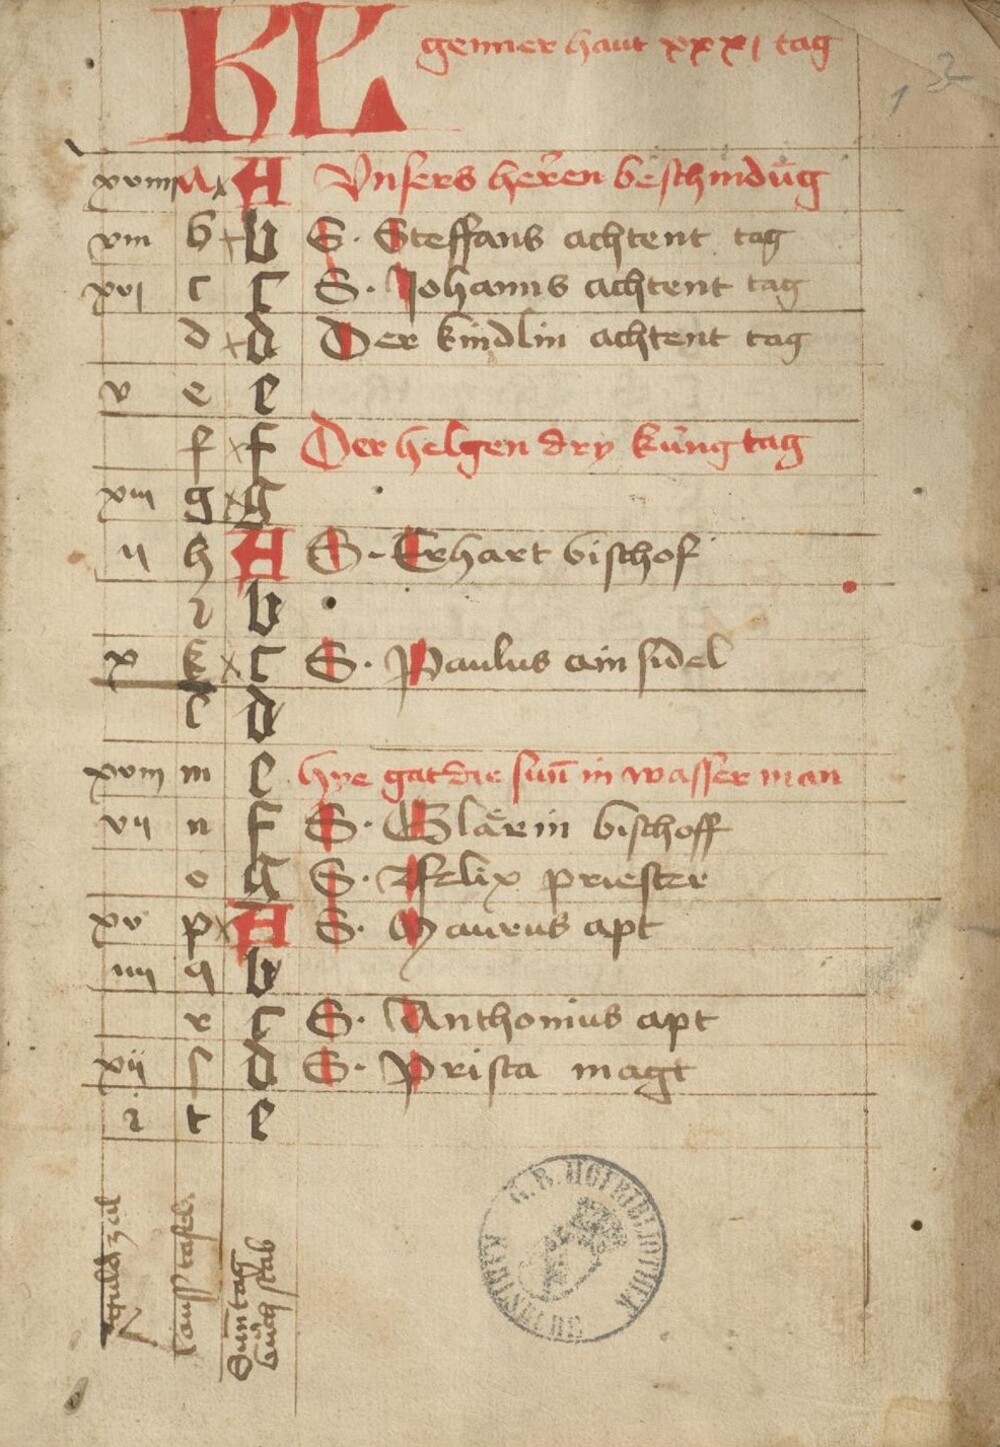 KL genner haut xxxi tag
1 2
xviiii A A Vnsers heren beschnidūg
viii b b S. Steffans achtent tag
xvi c c S. Johanns achtent tag
d d Der kindlin achtent tag
v e e
f f Der helgen dry küng tag
xiii g g
ii h A S. Erhart bischof
i b
x k c S. Paulus ainsidel
l d
xviii m e hye gat die suñ in wasserman
vii n f S. Glärin bischoff
o g S. Felix priester
xv p A S. Maurus apt
iiii q b
r c S. Anthonius apt
xii s d S. Prisca magt
i t e
guldi zal
Suntag
buch stab
G. B. HOFBIBLIOTHEK
KARLSRUHE